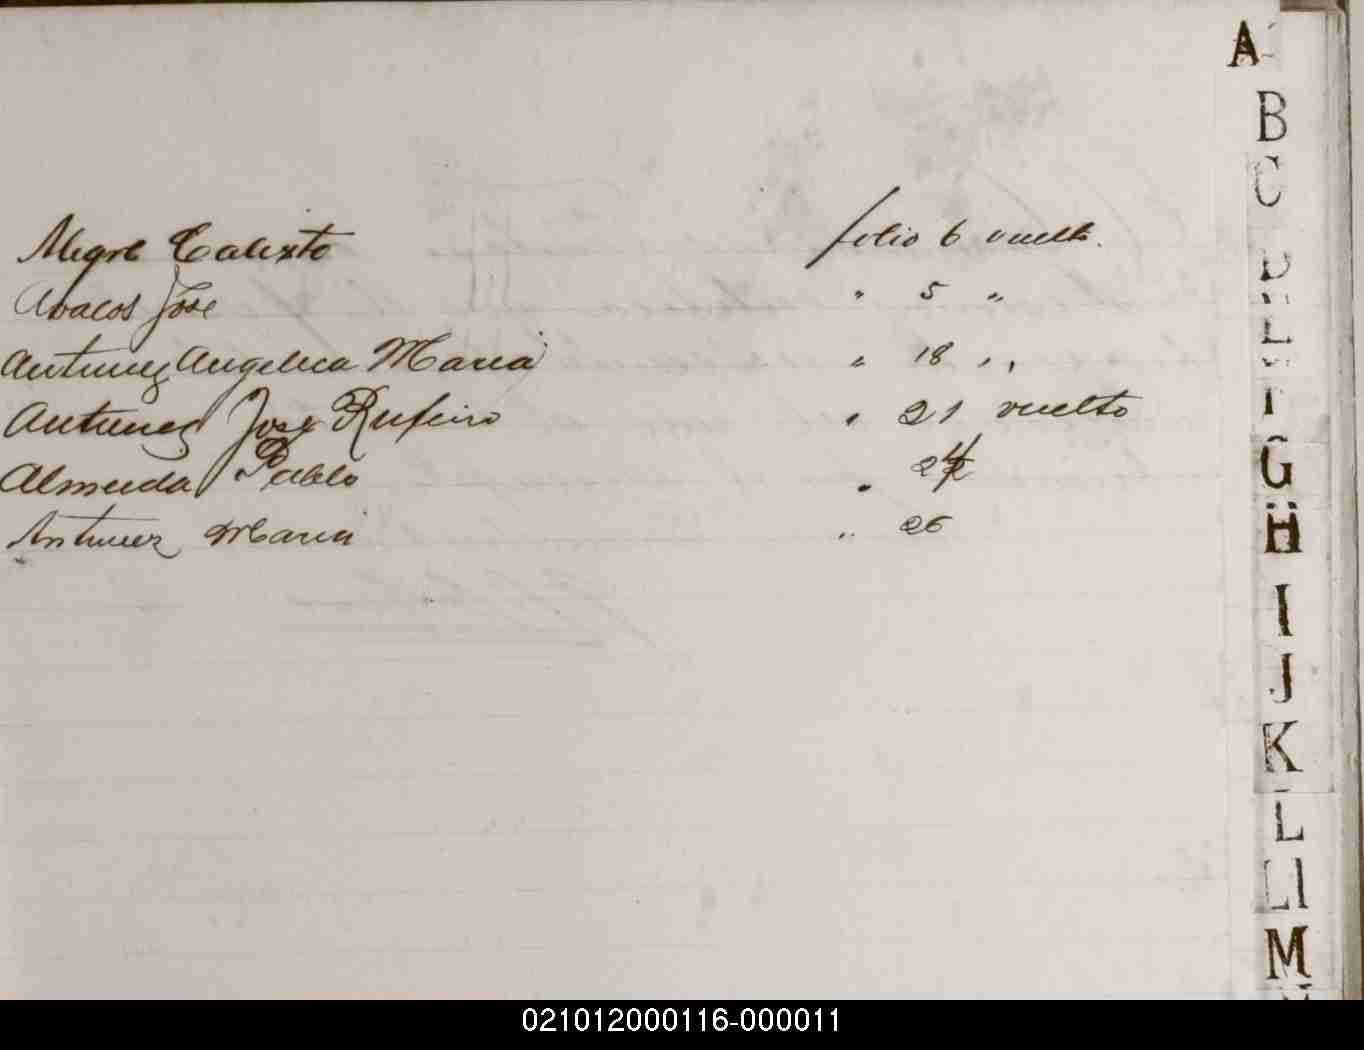 Alegre Calixto folio 6 vuelto.
Abacos Jose " 5 "
Antunez Angelica Maria " 18 "
Antunez Jose Rufino " 21 vuelto
Almeida Pablo " 24
Antunez Maria " 26
A
B
C
D
E
F
G
H
I
J
K
L
Ll
M
021012000116-000011